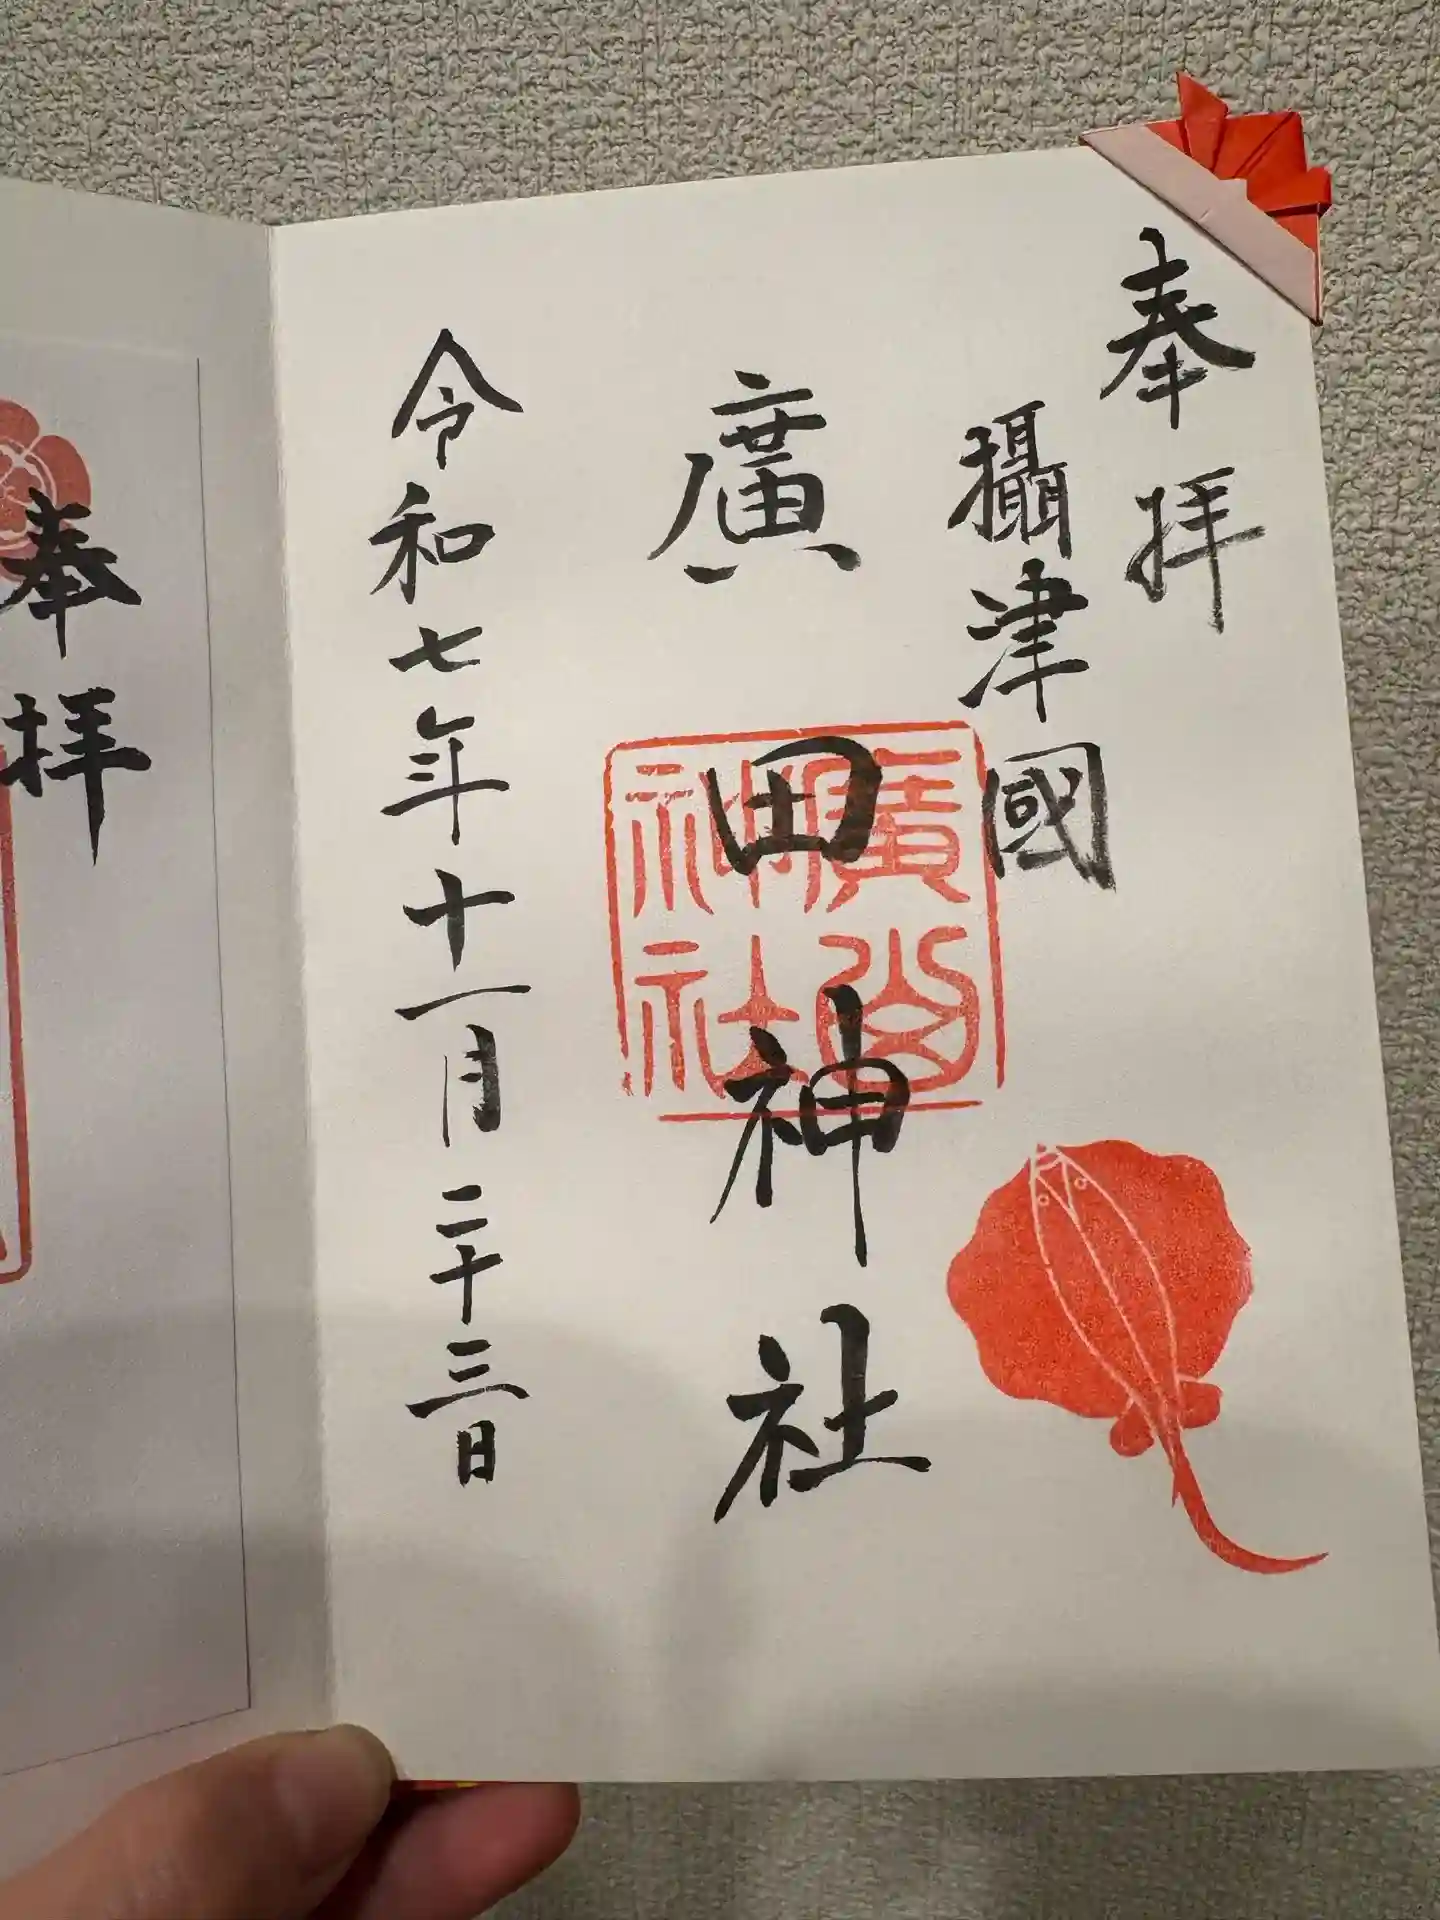 奉拝
攝津國
廣田神社
廣田神社
令和七年十一月二十三日
奉拝